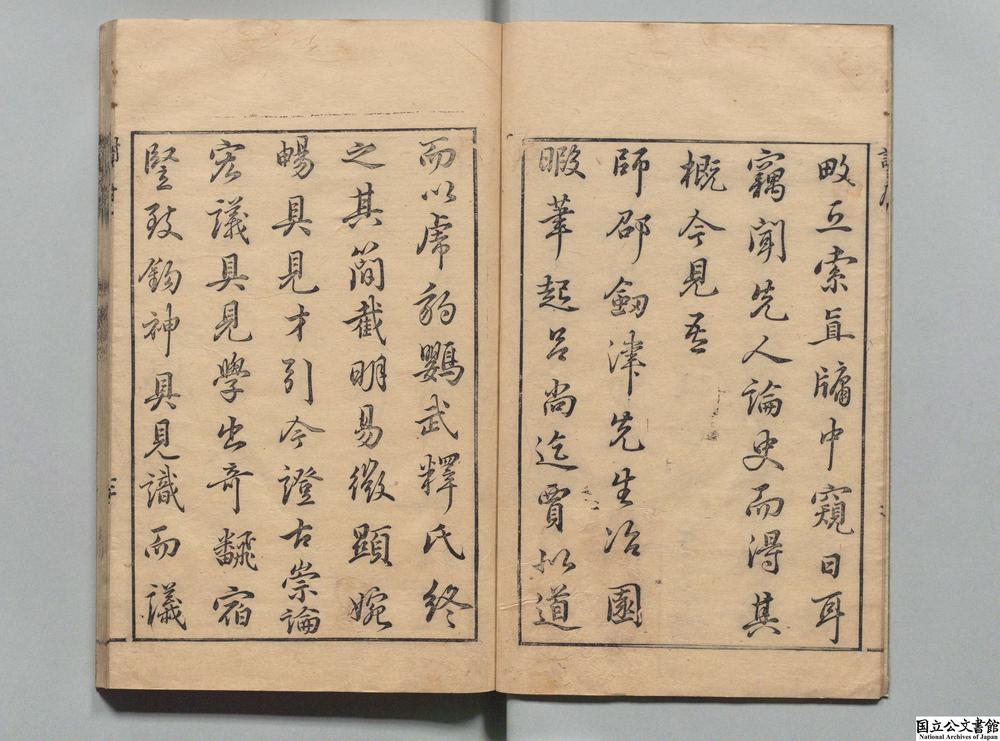 畝丘索真牖中窺日耳
竊聞先人論史而得其
概今見吾
師邵劒津先生治園
暇筆起呂尚迄賈似道
而以虎豹鸚武釋氏終
之其簡截明易微顯婉
暢具見才引今證古崇論
宏議具見學出奇翻宿
豎致鈎神具見識而議
国立公文書館
National Archives of Japan